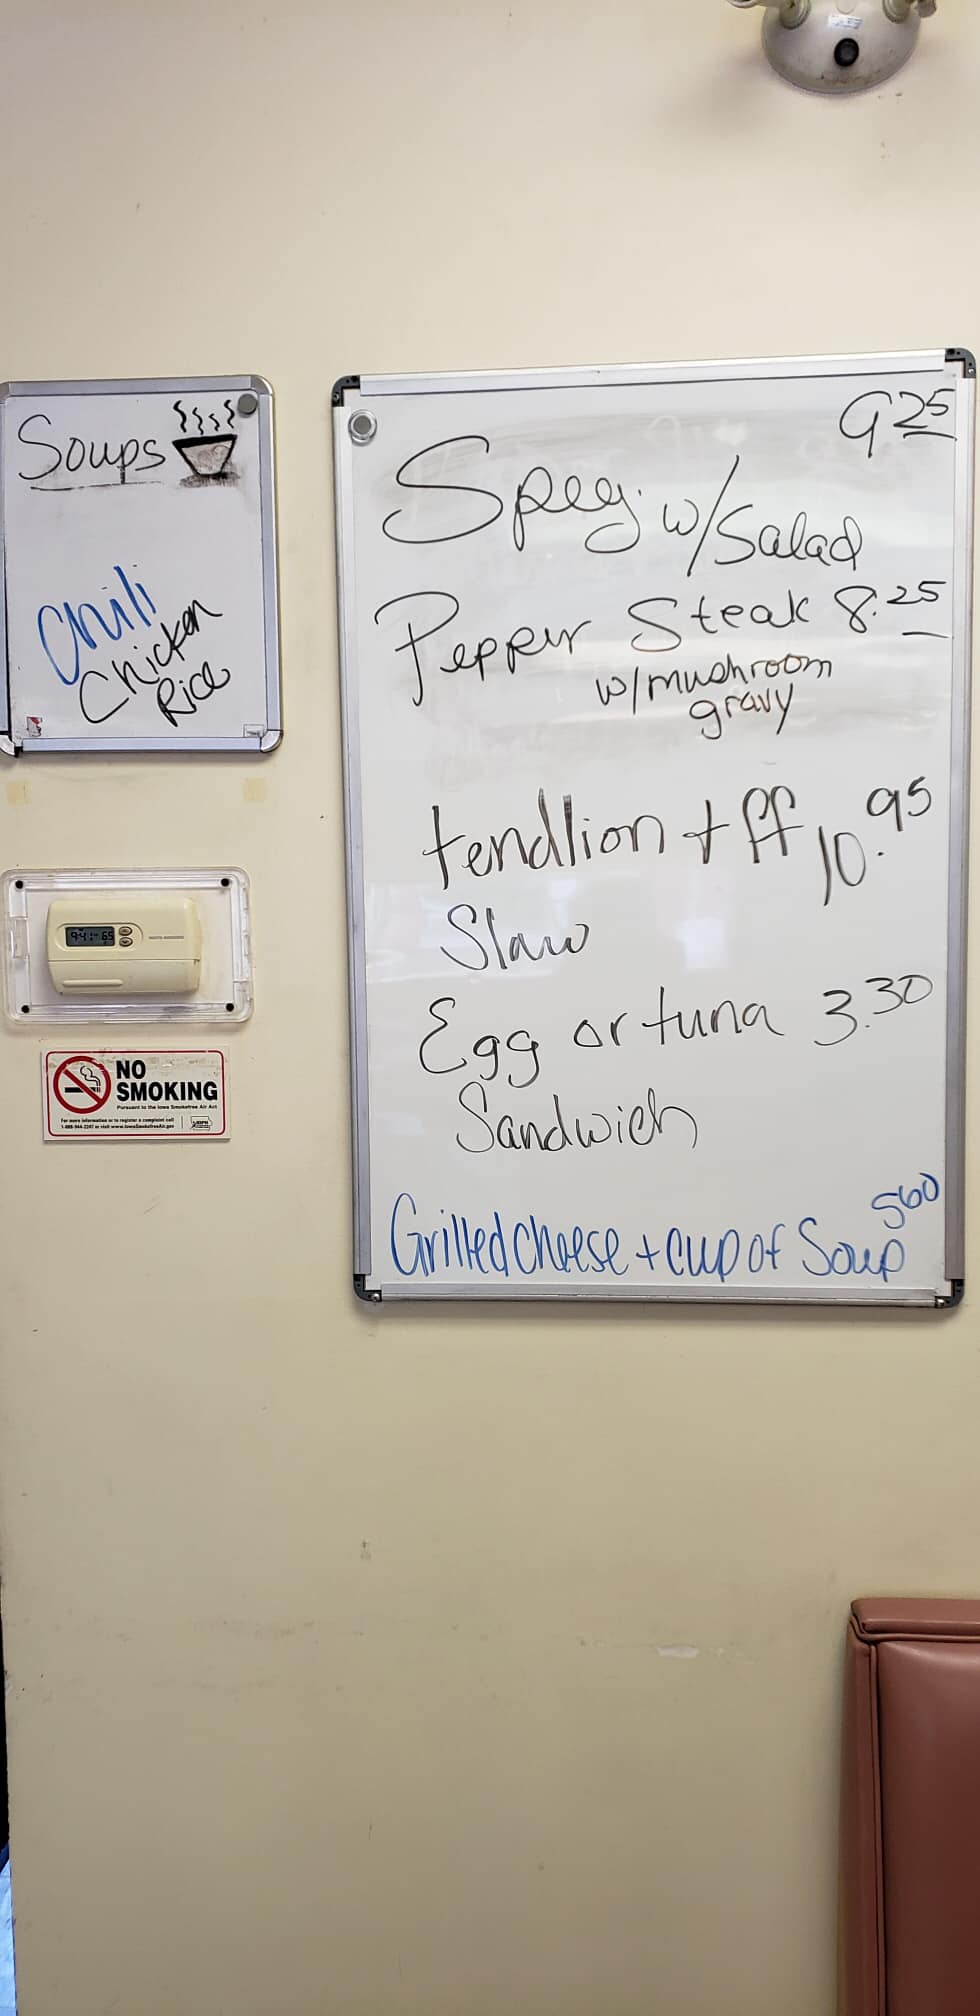 Soups
Chili
Chicken
Rice
9 25
Speg. w/Salad
Pepper Steak 8.25
w/mushroom
gravy
tendlion + ff 10.95
Slaw
Egg or tuna 3.30
Sandwich
560
Grilled cheese + cup of Soup
9:41 65
NO
SMOKING
Pursuant to the Iowa Smokefree Air Act
For more information or to register a complaint call
1-888-944-2247 or visit www.IowaSmokefreeAir.gov